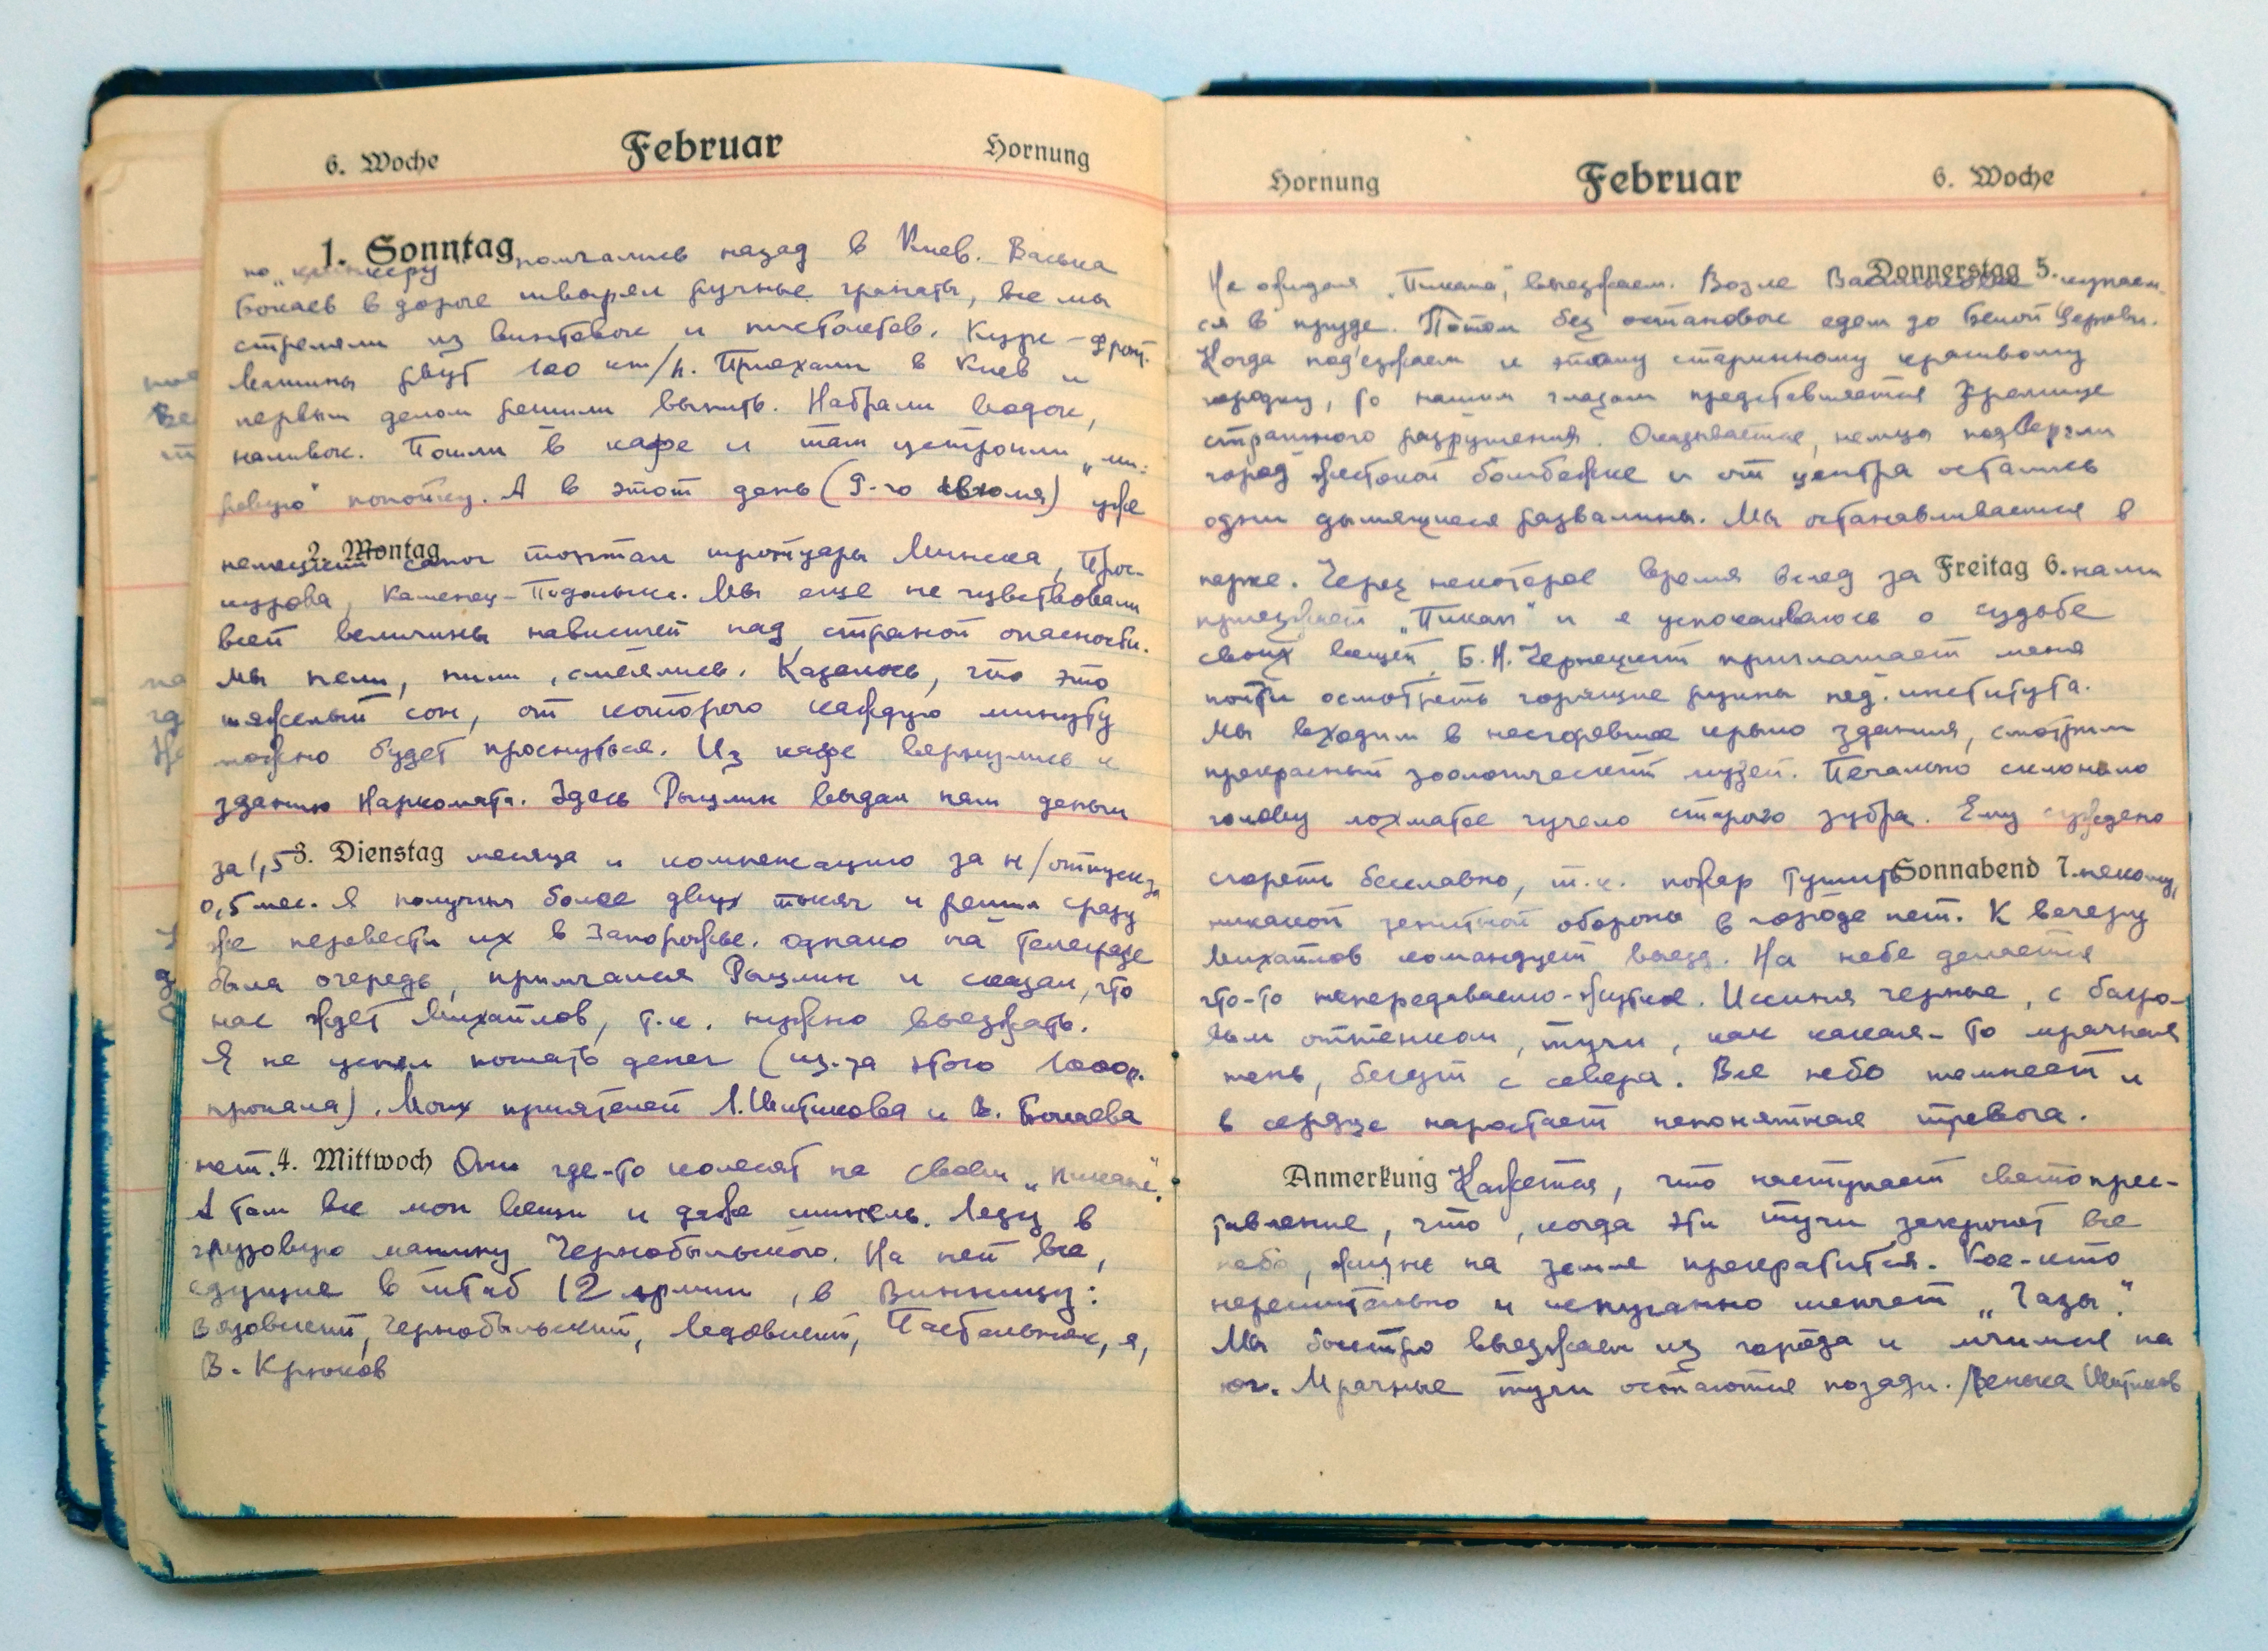 6. Woche Februar Hornung
1. Sonntag
по „ помчались назад в Киев. Васька
Бокаев в дороге швырял ручные гранаты, все мы
стреляли из винтовок и пистолетов. Курс – фронт.
Машины рвут 100 km/h. Приехали в Киев и
первым делом решили выпить. Набрали водок,
наливок. Пошли в кафе и там устроили „ми-
ровую" попойку. А в этот день (9-го июля) уже
2. Montag
немецкий сапог топтал тротуары Минска, Прос-
курова, Каменец-Подольск. Мы еще не чувствовали
всей величины нависшей над страной опасности.
Мы пели, пили, смеялись. Казалось, что это
тяжелый сон, от которого каждую минуту
можно будет проснуться. Из кафе вернулись к
зданию Наркомата. Здесь Рыцлин выдал нам деньги
за 1,5 3. Dienstag месяца и компенсацию за н/отпуск за
0,5 мес. Я получил более двух тысяч и решил сразу
же перевести их в Запорожье. Однако на телеграфе
была очередь, примчался Рыцлин и сказал, что
нас ждет Михайлов, т.к. нужно выезжать.
Я не успел послать денег (из-за этого 1000р.
пропала). Моих приятелей Л. Шитикова и В. Бокаева
нет. 4. Mittwoch Они где-то колесят на своем „Пикапе".
А там все мои вещи и даже шинель. Лезу в
грузовую машину Чернобыльского. На ней все,
едущие в штаб 12 армии, в Винницу:
Вязовский, Чернобыльский, Ледовский, Пастельняк, я,
В. Крюков
Hornung Februar 6. Woche
Donnerstag 5.
Не ожидая „Пикапа", выезжаем. Возле Василькова купаем-
ся в пруде. Потом без остановок едем до Белой Церкви.
Когда под'езжаем к этому старинному красивому
городку, то нашим глазам представляется зрелище
страшного разрушения. Оказывается, немцы подвергли
город жестокой бомбежке и от центра остались
одни дымящиеся развалины. Мы останавливаемся в
парке. Через некоторое время вслед за Freitag 6. нами
приезжает „Пикап" и я успокаиваюсь о судьбе
своих вещей. Б.Н. Чернецкий приглашает меня
пойти осмотреть горящие руины пед. института.
Мы входим в несгоревшее крыло здания, смотрим
прекрасный зоологический музей. Печально склонило
голову лохматое чучело старого зубра. Ему суждено
сгореть бесславно, т.к. пожар тушить Sonnabend 7. некому,
никакой зенитной обороны в городе нет. К вечеру
Михайлов командует выезд. На небе делается
что-то непередаваемо-жуткое. Иссиня черные, с багро-
вым оттенком, тучи, как какая-то мрачная
тень, бегут с севера. Все небо темнеет и
в сердце нарастает непонятная тревога.
Anmerkung Кажется, что наступает светопрес-
тавление, что, когда эти тучи закроют все
небо, жизнь на земле прекратится. Кое-кто
нерешительно и испуганно шепчет „Газы".
Мы быстро выезжаем из города и мчимся на
юг. Мрачные тучи остаются позади. Ленька Шитиков